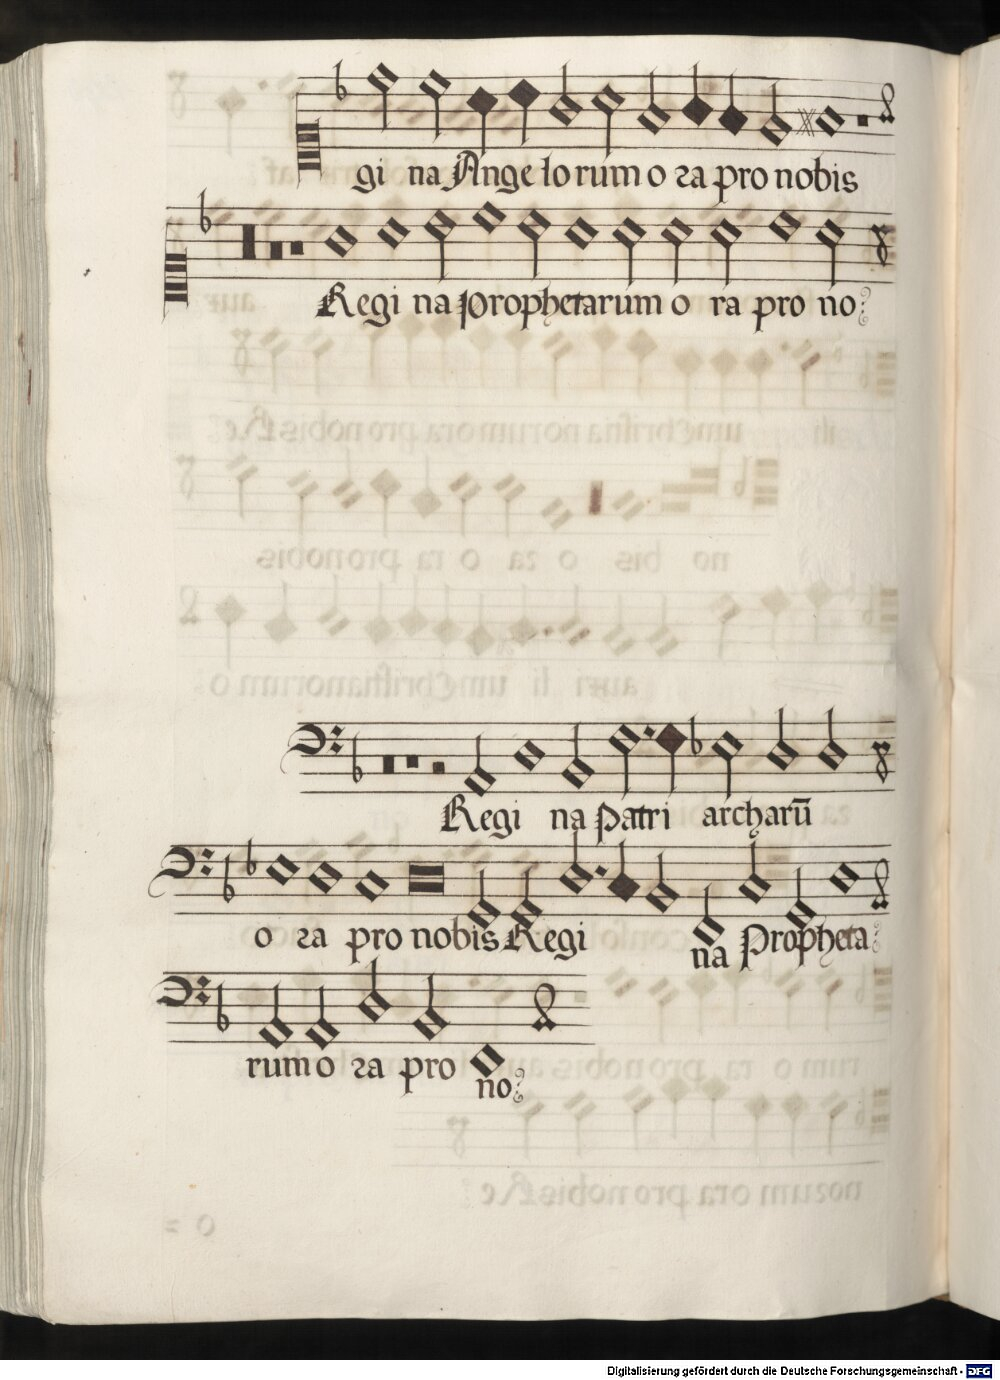 gi na Ange lorum o ra pro nobis
Regi na prophetarum o ra pro no:
Regi na Patri archarū
o ra pro nobis Regi na Propheta:
rum o ra pro no:
Digitalisierung gefördert durch die Deutsche Forschungsgemeinschaft - DFG